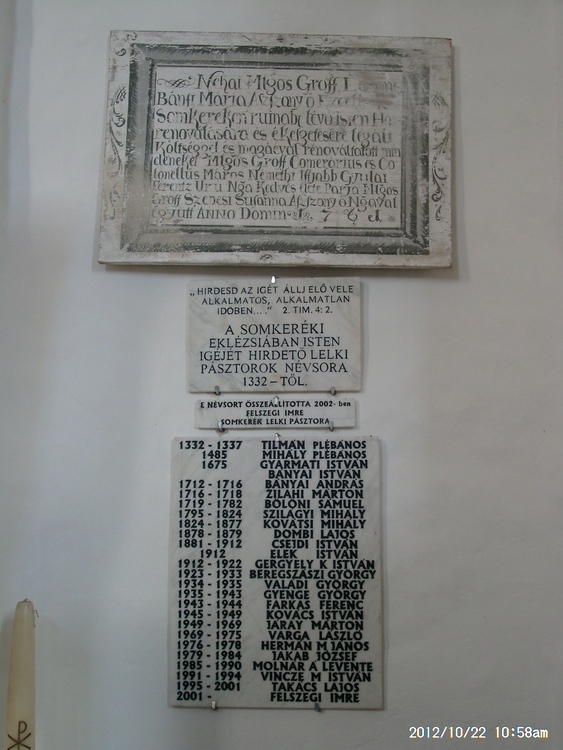 Néhai Mlgos Groff
Bánfi Mária Aszszony ő
Somkereken ruinab. lévő Isten
renoválására és ékesgetésére
Költséggel és magaéval renováltatott
Mlgos Groff Comerarius és Co
lonellus Maros Némethi Ifjabb Gyulai
Ferentz Ur ű Nga Kedves élete Párja Mlgos
Groff Szepesi Susanna Aszszony ő Ngával
együtt Anno Domini
„HIRDESD AZ IGÉT ÁLLJ ELŐ VELE
ALKALMATOS, ALKALMATLAN
IDŐBEN....“ 2. TIM. 4: 2.
A SOMKERÉKI
EKLÉZSIÁBAN ISTEN
IGÉJÉT HIRDETŐ LELKI
PÁSZTOROK NÉVSORA
1332 – TŐL.
E NÉVSORT ÖSSZEÁLLITOTTA 2002- ben
FELSZEGI IMRE
SOMKERÉK LELKI PÁSZTORA
1332 - 1337 TILMAN PLÉBÁNOS
1485 MIHÁLY PLÉBÁNOS
1675 GYARMATI ISTVÁN
BÁNYAI ISTVÁN
1712 - 1716 BÁNYAI ANDRÁS
1716 - 1718 ZILAHI MÁRTON
1719 - 1782 BÖLÖNI SÁMUEL
1795 - 1824 SZILÁGYI MIHÁLY
1824 - 1877 KOVÁTSI MIHÁLY
1878 - 1879 DOMBI LAJOS
1881 - 1912 CSEJDI ISTVÁN
1912 ELEK ISTVÁN
1912 - 1922 GERGYELY K ISTVÁN
1923 - 1933 BEREGSZÁSZI GYÖRGY
1934 - 1935 VALÁDI GYÖRGY
1935 - 1943 GYENGE GYÖRGY
1943 - 1944 FARKAS FERENC
1945 - 1949 KOVÁCS ISTVÁN
1949 - 1969 JÁRAY MÁRTON
1969 - 1975 VARGA LÁSZLÓ
1976 - 1978 HERMÁN M JÁNOS
1979 - 1984 JAKAB JÓZSEF
1985 - 1990 MOLNÁR A LEVENTE
1991 - 1994 VINCZE M ISTVÁN
1995 - 2001 TAKÁCS LAJOS
2001 - FELSZEGI IMRE
2012/10/22 10:58am